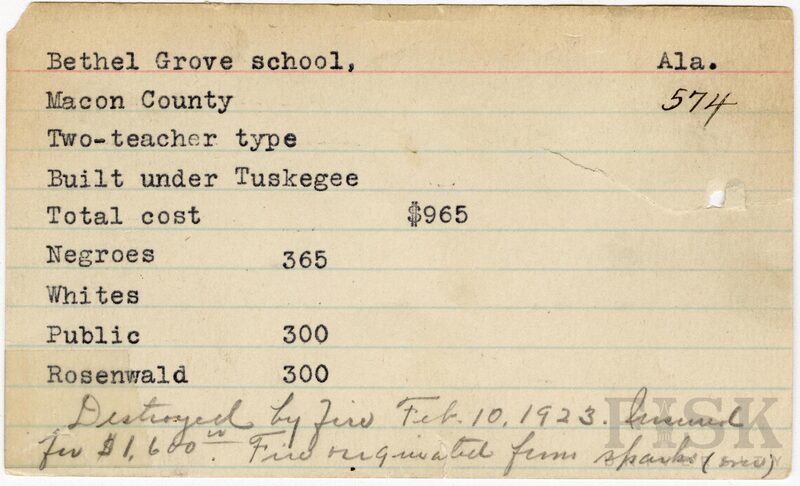 Bethel Grove school, Ala.
Macon County 574
Two-teacher type
Built under Tuskegee
Total cost $965
Negroes 365
Whites
Public 300
Rosenwald 300
Destroyed by fire Feb. 10, 1923. Insured
for $1,600⁰⁰. Fire originated from sparks (over)
FISK